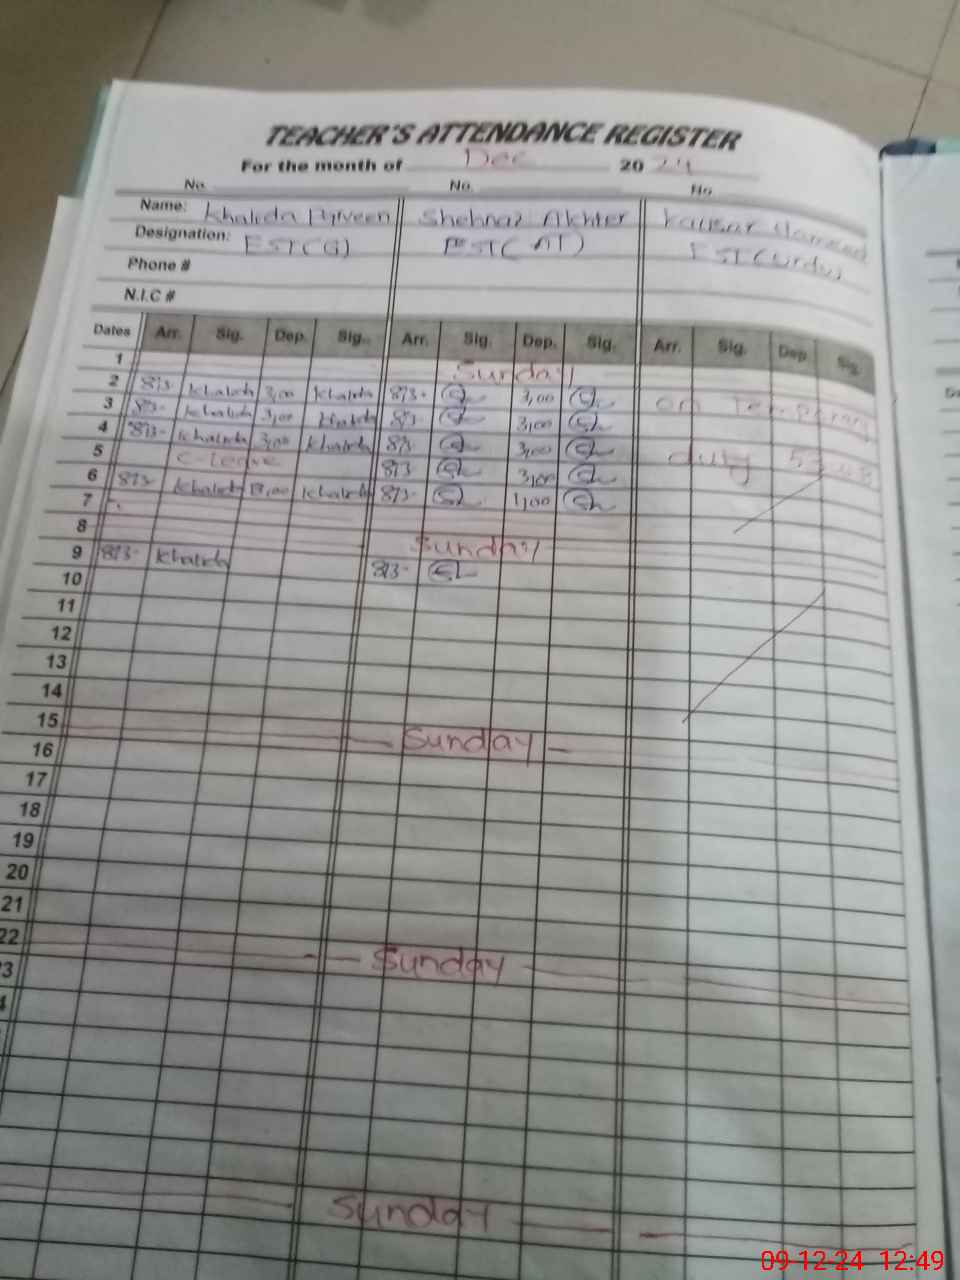 TEACHER'S ATTENDANCE REGISTER
For the month of Dec 2024
No. No. No
Name: Khalida Parveen Shehnaz Akhter Kausar Hameed
Designation: EST(G) EST(AT) EST(Urdu)
Phone #
N.I.C #
Dates Arr. Sig. Dep. Sig.. Arr. Sig. Dep. Sig. Arr. Sig. Dep. Sig.
1 Sunday
2 8/3- Khalida 3,00 Khalida 8/3- 3,00
3 8/3- Khalida 3,00 Khalida 8/3- 3,00 on Temporary
4 8/3- Khalida 3,00 Khalida 8/3- 3,00
5 C-leave 8/3 3,00 duty
6 8/3- Khalida Khalida 8/3- 1,00
7
8 Sunday
9 8/3- Khalida 8/3-
10
11
12
13
14
15 Sunday
16
17
18
19
20
21
22 Sunday
3
4
Sunday
09-12-24 12:49